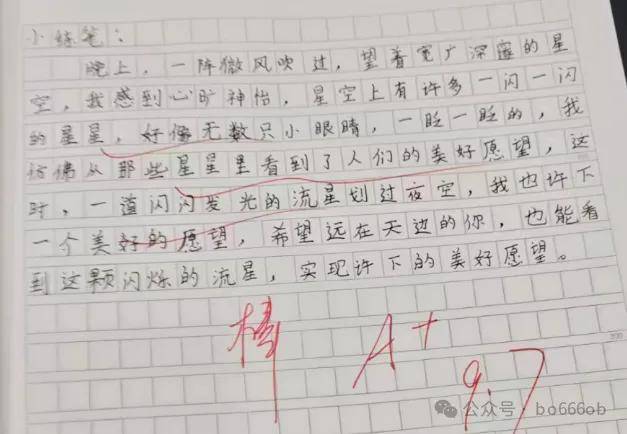 小练笔：
晚上，一阵微风吹过，望着宽广深邃的星
空，我感到心旷神怡，星空上有许多一闪一闪
的星星，好像无数只小眼睛，一眨一眨的，我
仿佛从那些星星里看到了人们的美好愿望，这
时，一道闪闪发光的流星划过夜空，我也许下
一个美好的愿望，希望远在天边的你，也能看
到这颗闪烁的流星，实现许下的美好愿望。
棒 A+
9.7
公众号·bo666ob